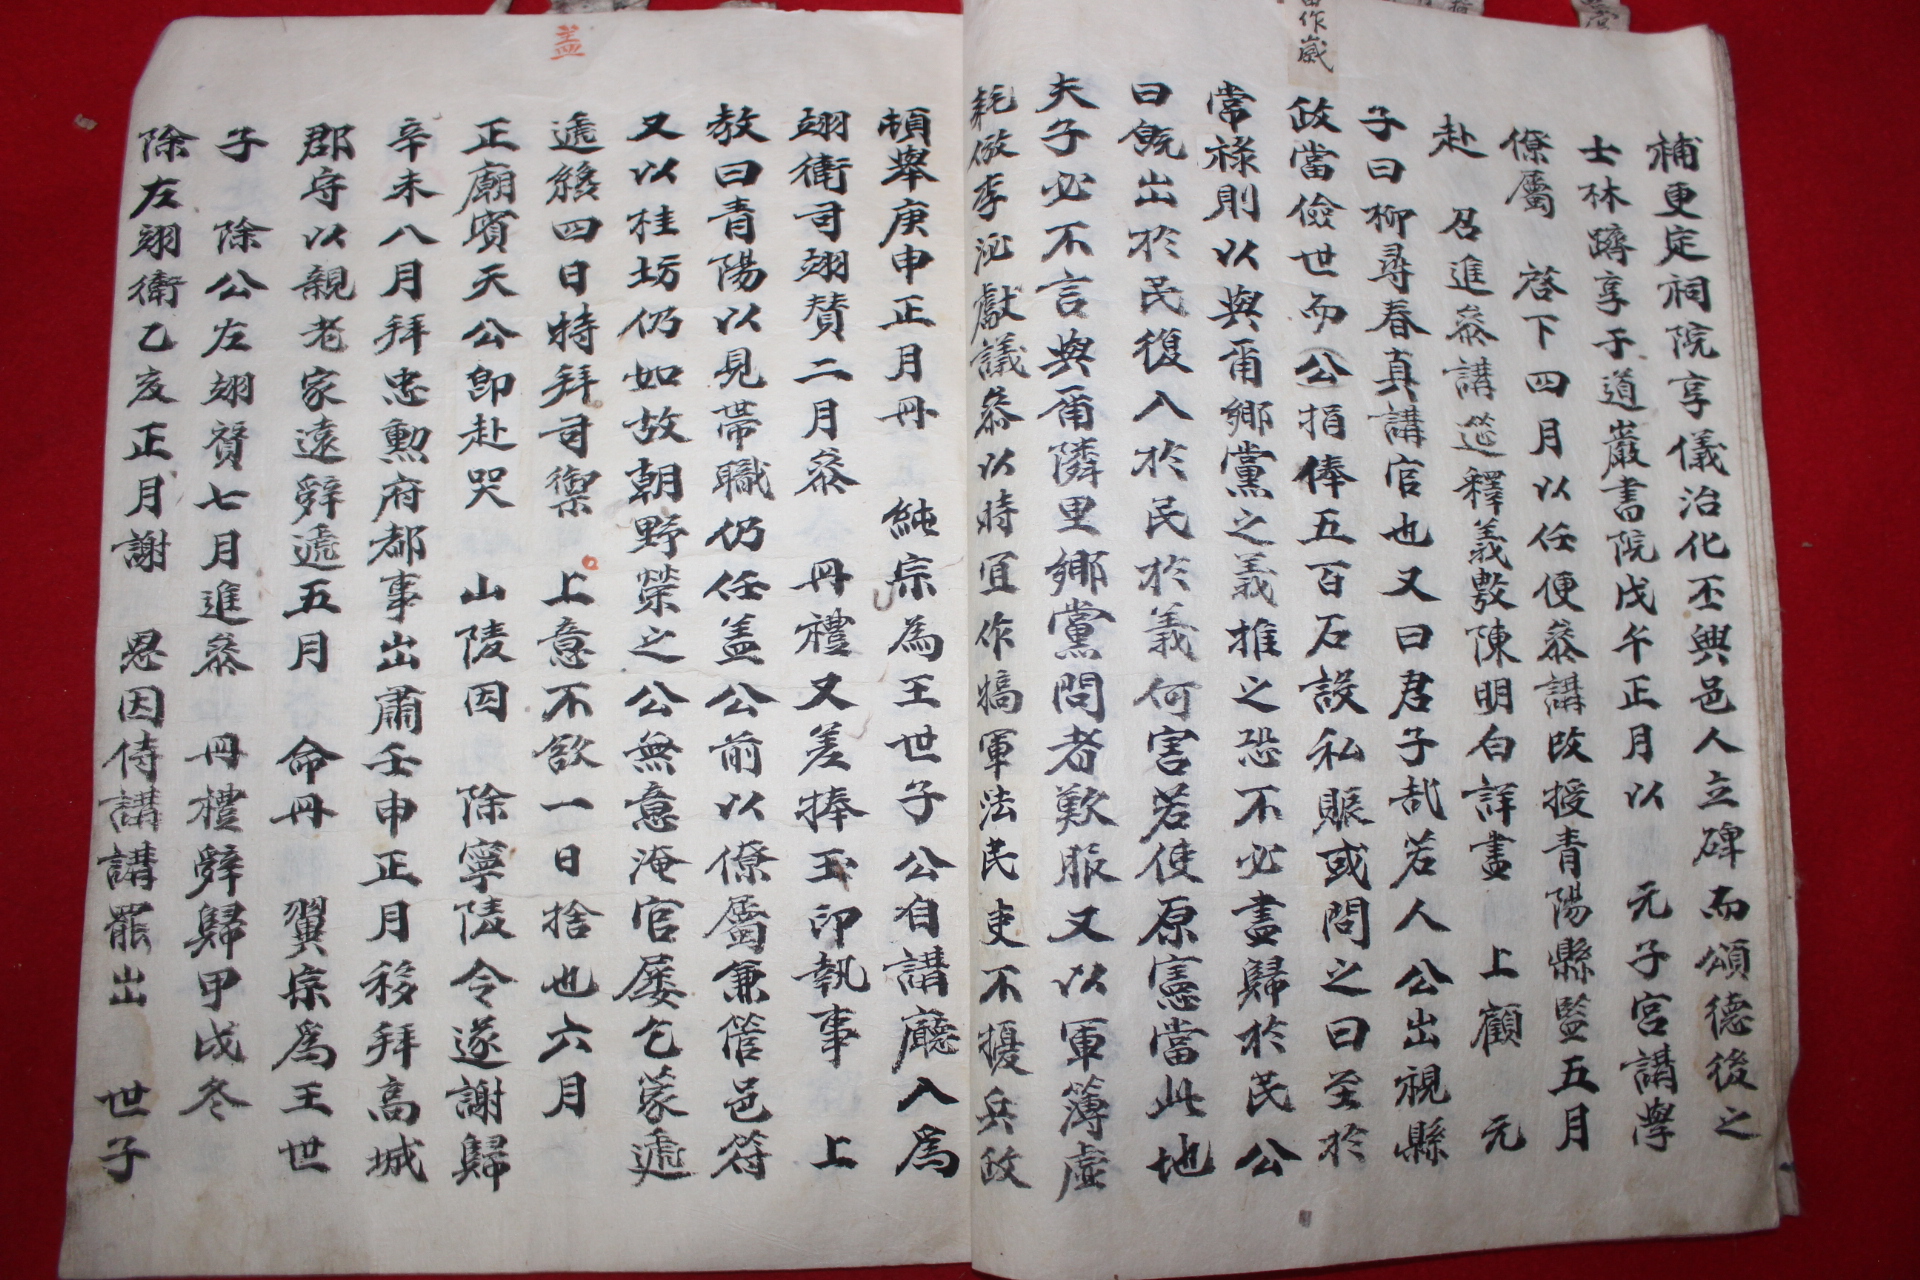 補更定祠院享儀治化丕興邑人立碑而頌德後之
士林躋享于道巖書院戊午正月以 元子宮講學
僚屬 啓下四月以任便叅講改授青陽縣監五月
赴 召進叅講筵釋義敷陳明白詳盡 上顧 元
子曰柳尋春真講官也又曰君子哉若人公出視縣
政當儉世而公捐俸五百石設私賑或問之曰至於
常祿則以與甭鄉黨之義推之恐不必盡歸於民公
曰旣出於民復入於民於義何害若使原憲當此地
夫子必不言與甭隣里鄉黨問者歎服又以軍簿虛
耗倣李泌獻議叅以時宜作犒軍法民吏不擾兵政
頓擧庚申正月冊 純宗為王世子公自講廳入爲
翊衛司翊賛二月叅 冊禮又差捧玉印執事 上
教曰青陽以見帶職仍任盖公前以僚屬兼管邑符
又以桂坊仍如故朝野榮之公無意淹官屡乞蒙遞
遞後四日特拜司禦 上意不欲一日捨也六月
正廟賓天公卽赴哭 山陵因 除寧陵令遂謝歸
辛未八月拜忠勳府都事出肅壬申正月移拜高城
郡守以親老家遠辭遞五月 命冊 翼宗爲王世
子 除公左翊贊七月進叅 冊禮辭歸甲戌冬
除左翊衛乙亥正月謝 恩因侍講講罷出 世子
盖
作歲